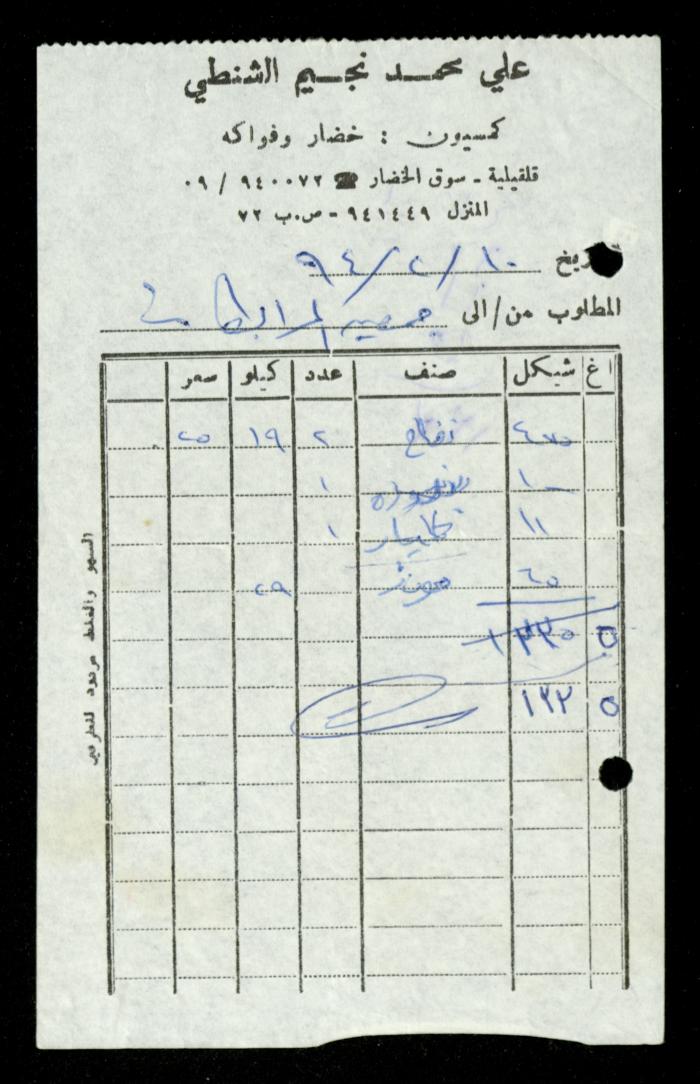 علي محمد نجيم الشنطي
كمسيون : خضار وفواكه
قلقيلية - سوق الخضار ☎ ٩٤٠٠٧٢ / ٠٩
المنزل ٩٤١٤٤٩ - ص.ب ٧٢
التاريخ ١٠ / ٢ / ٩٤
المطلوب من/الى جمعية المرابطات
اغ شيكل صنف عدد كيلو سعر
تفاح ٢ ١٩ ٢٥
١٠ بندورة ١
١١ خيار ١
٦٥ موز ٢٩
١٣٢ ٥
السهو والغلط مرجود للطرفين